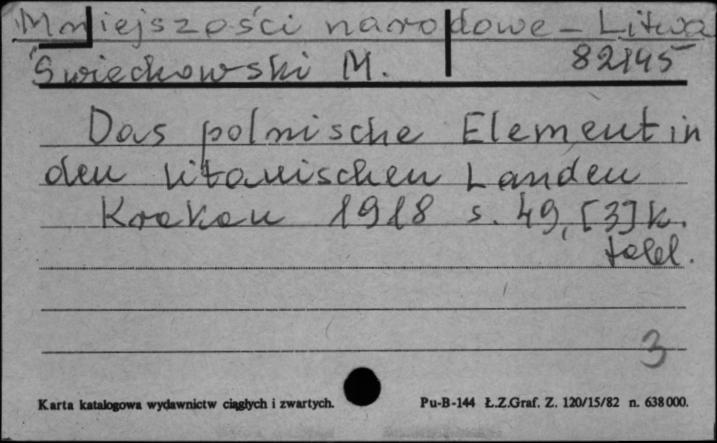 Mniejszości narodowe - Litwa
Święchowski M. 82145
Das polnische Element in
den litauischen Landen
Krakau 1918 s. 49, [3] k.
tabl.
3
Karta katalogowa wydawnictw ciągłych i zwartych. Pu-B-144 Ł.Z.Graf. Z. 120/15/82 n. 638 000.